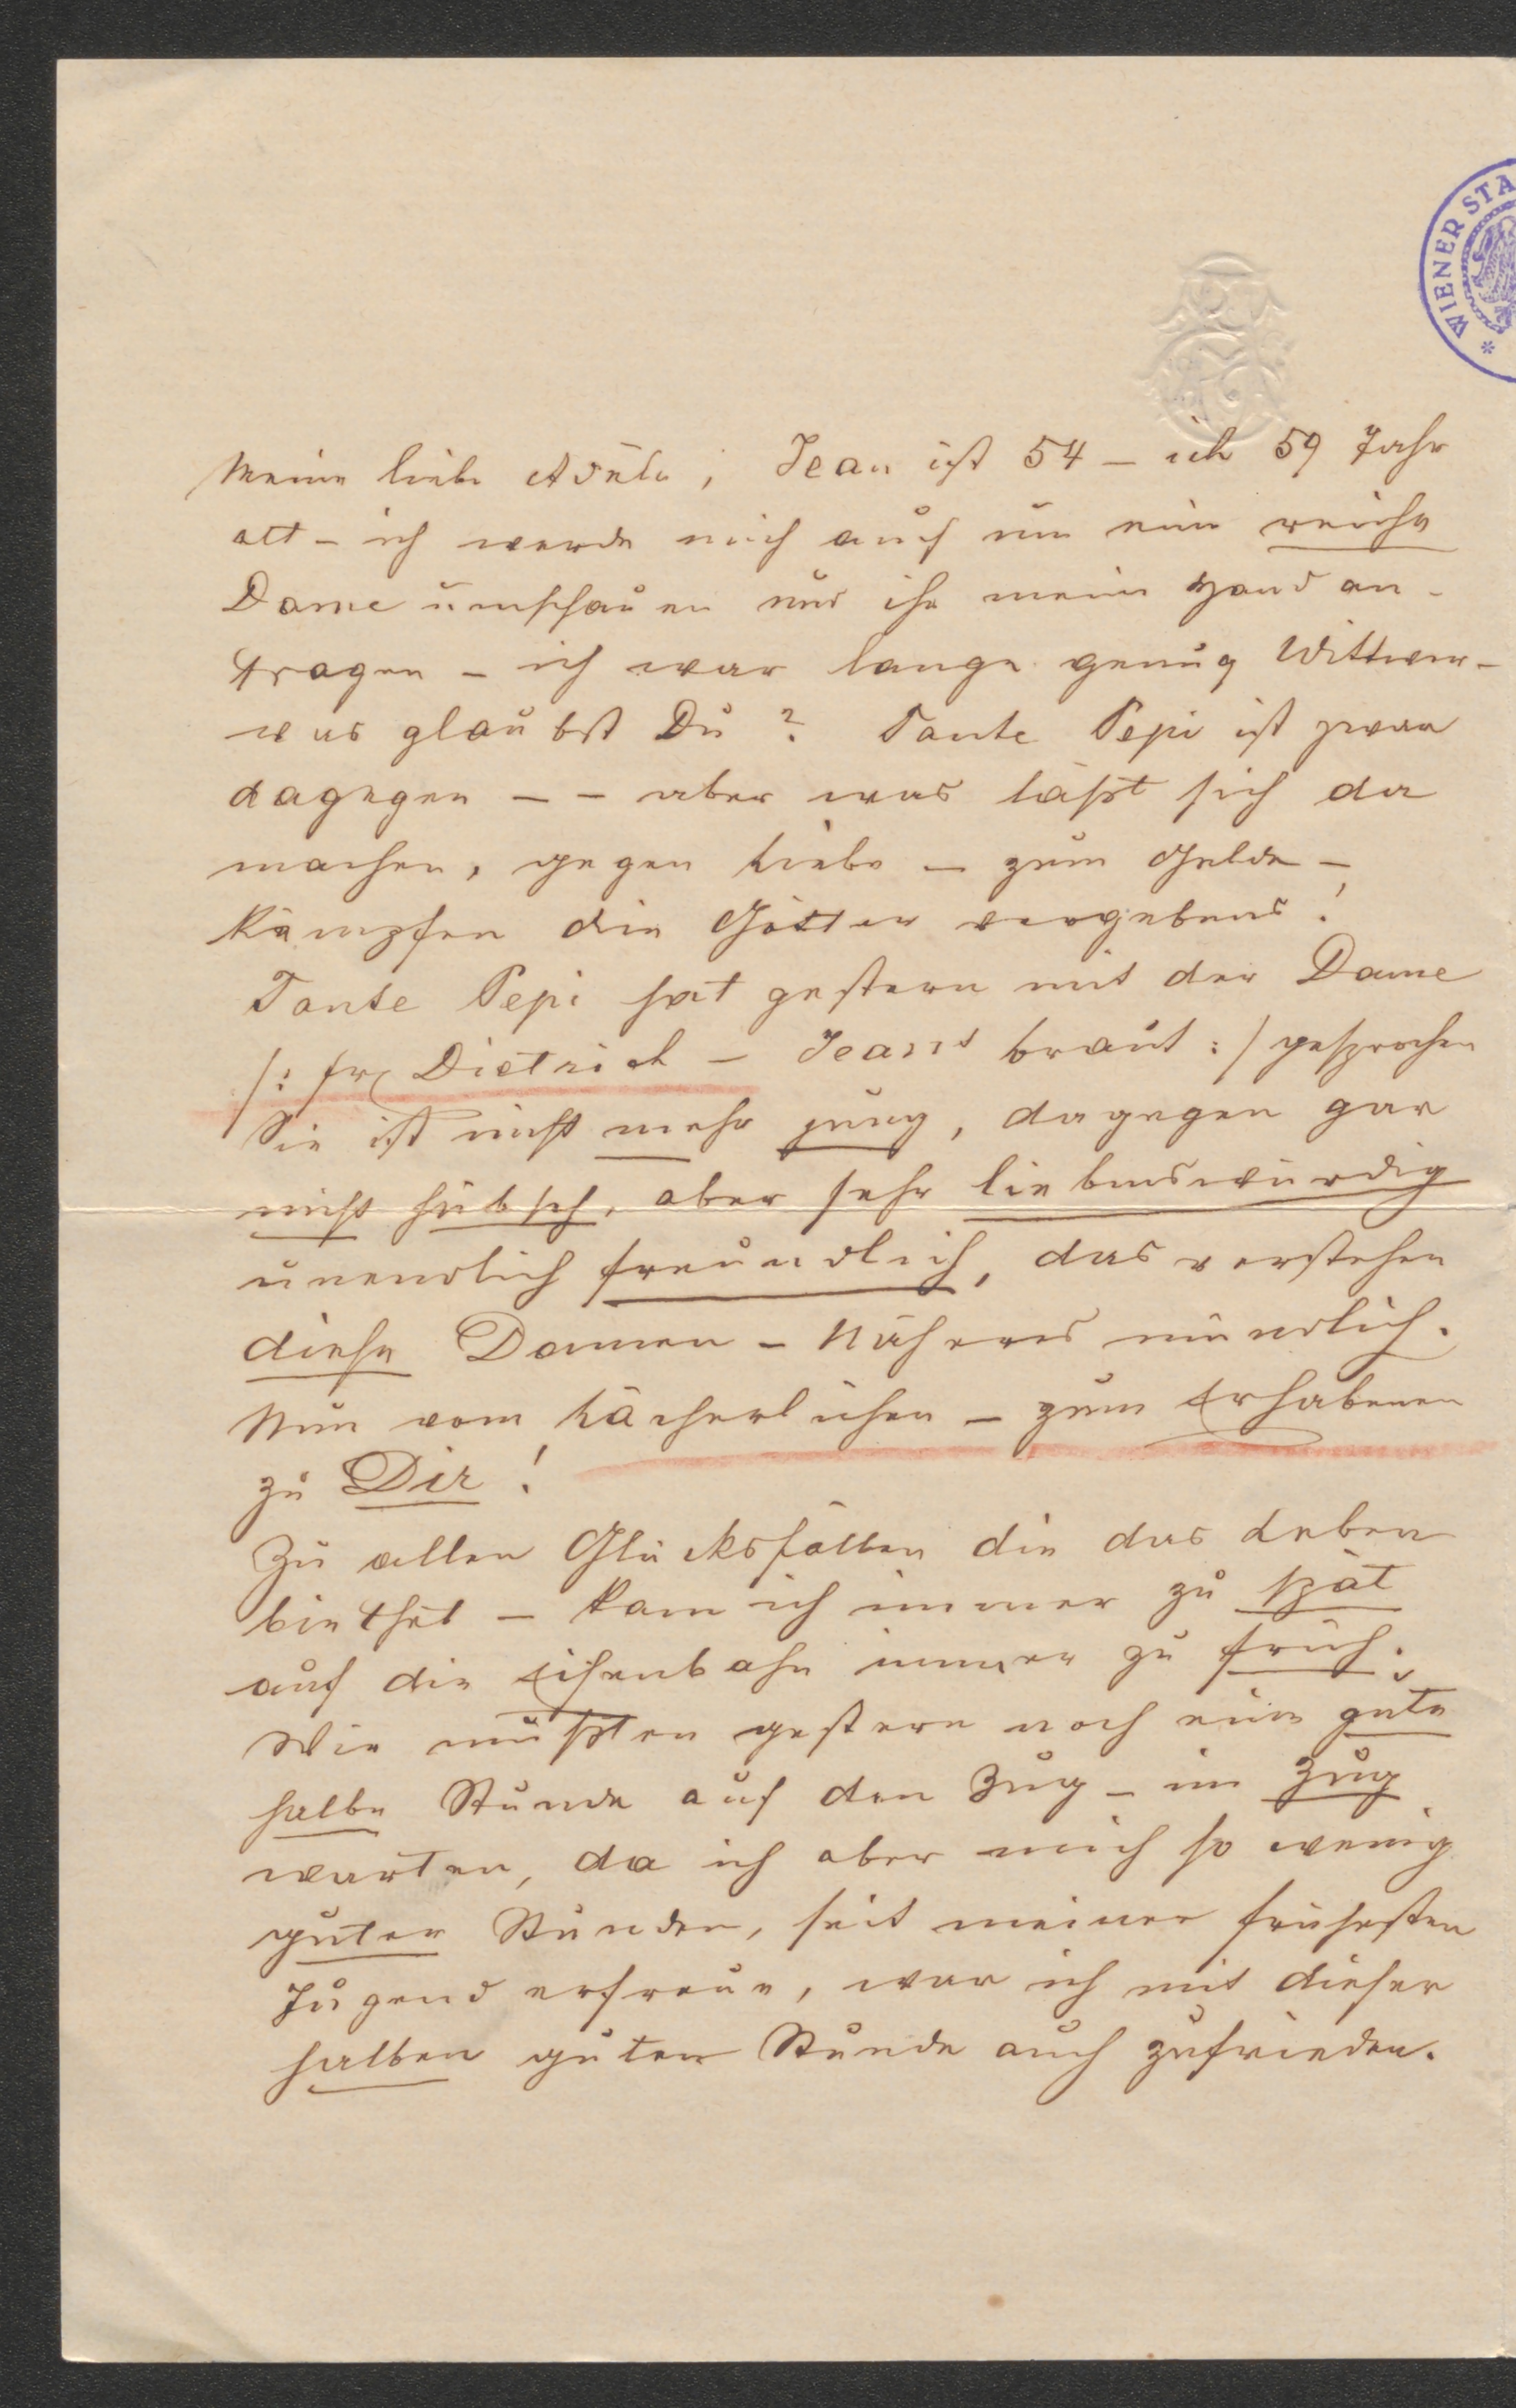 WIENER STA
Meine liebe Adele, Jean ist 54 – ich 59 Jahr
alt – ich werde mich auch um eine reiche
Dame umschauen und ihr meine Hand an-
tragen – ich war lange genug Wittwer –
was glaubst Du? Tante Pepi ist zwar
dagegen – – aber was läßt sich da
machen, gegen Liebe – zum Gelde –
kämpfen die Götter vergebens!
Tante Pepi hat gestern mit der Dame
/: Fr Dietrich – Jeans braut :/ gesprochen
Sie ist nicht mehr jung, dagegen gar
nicht hübsch, aber sehr liebenswürdig
unendlich freundlich, das verstehen
diese Damen – Näheres mündlich.
Nun vom Lächerlichen – zum Erhabenen
zu Dir!
Zu allen Glücksfällen die das Leben
biethet – kam ich immer zu spät
auf die Eisenbahn immer zu früh.
Wir mußten gestern noch eine gute
halbe Stunde auf den Zug – im Zug
warten, da ich aber mich so wenig
guter Stunden, seit meiner frühesten
Jugend erfreue, war ich mit dieser
halben guten Stunde auch zufrieden.